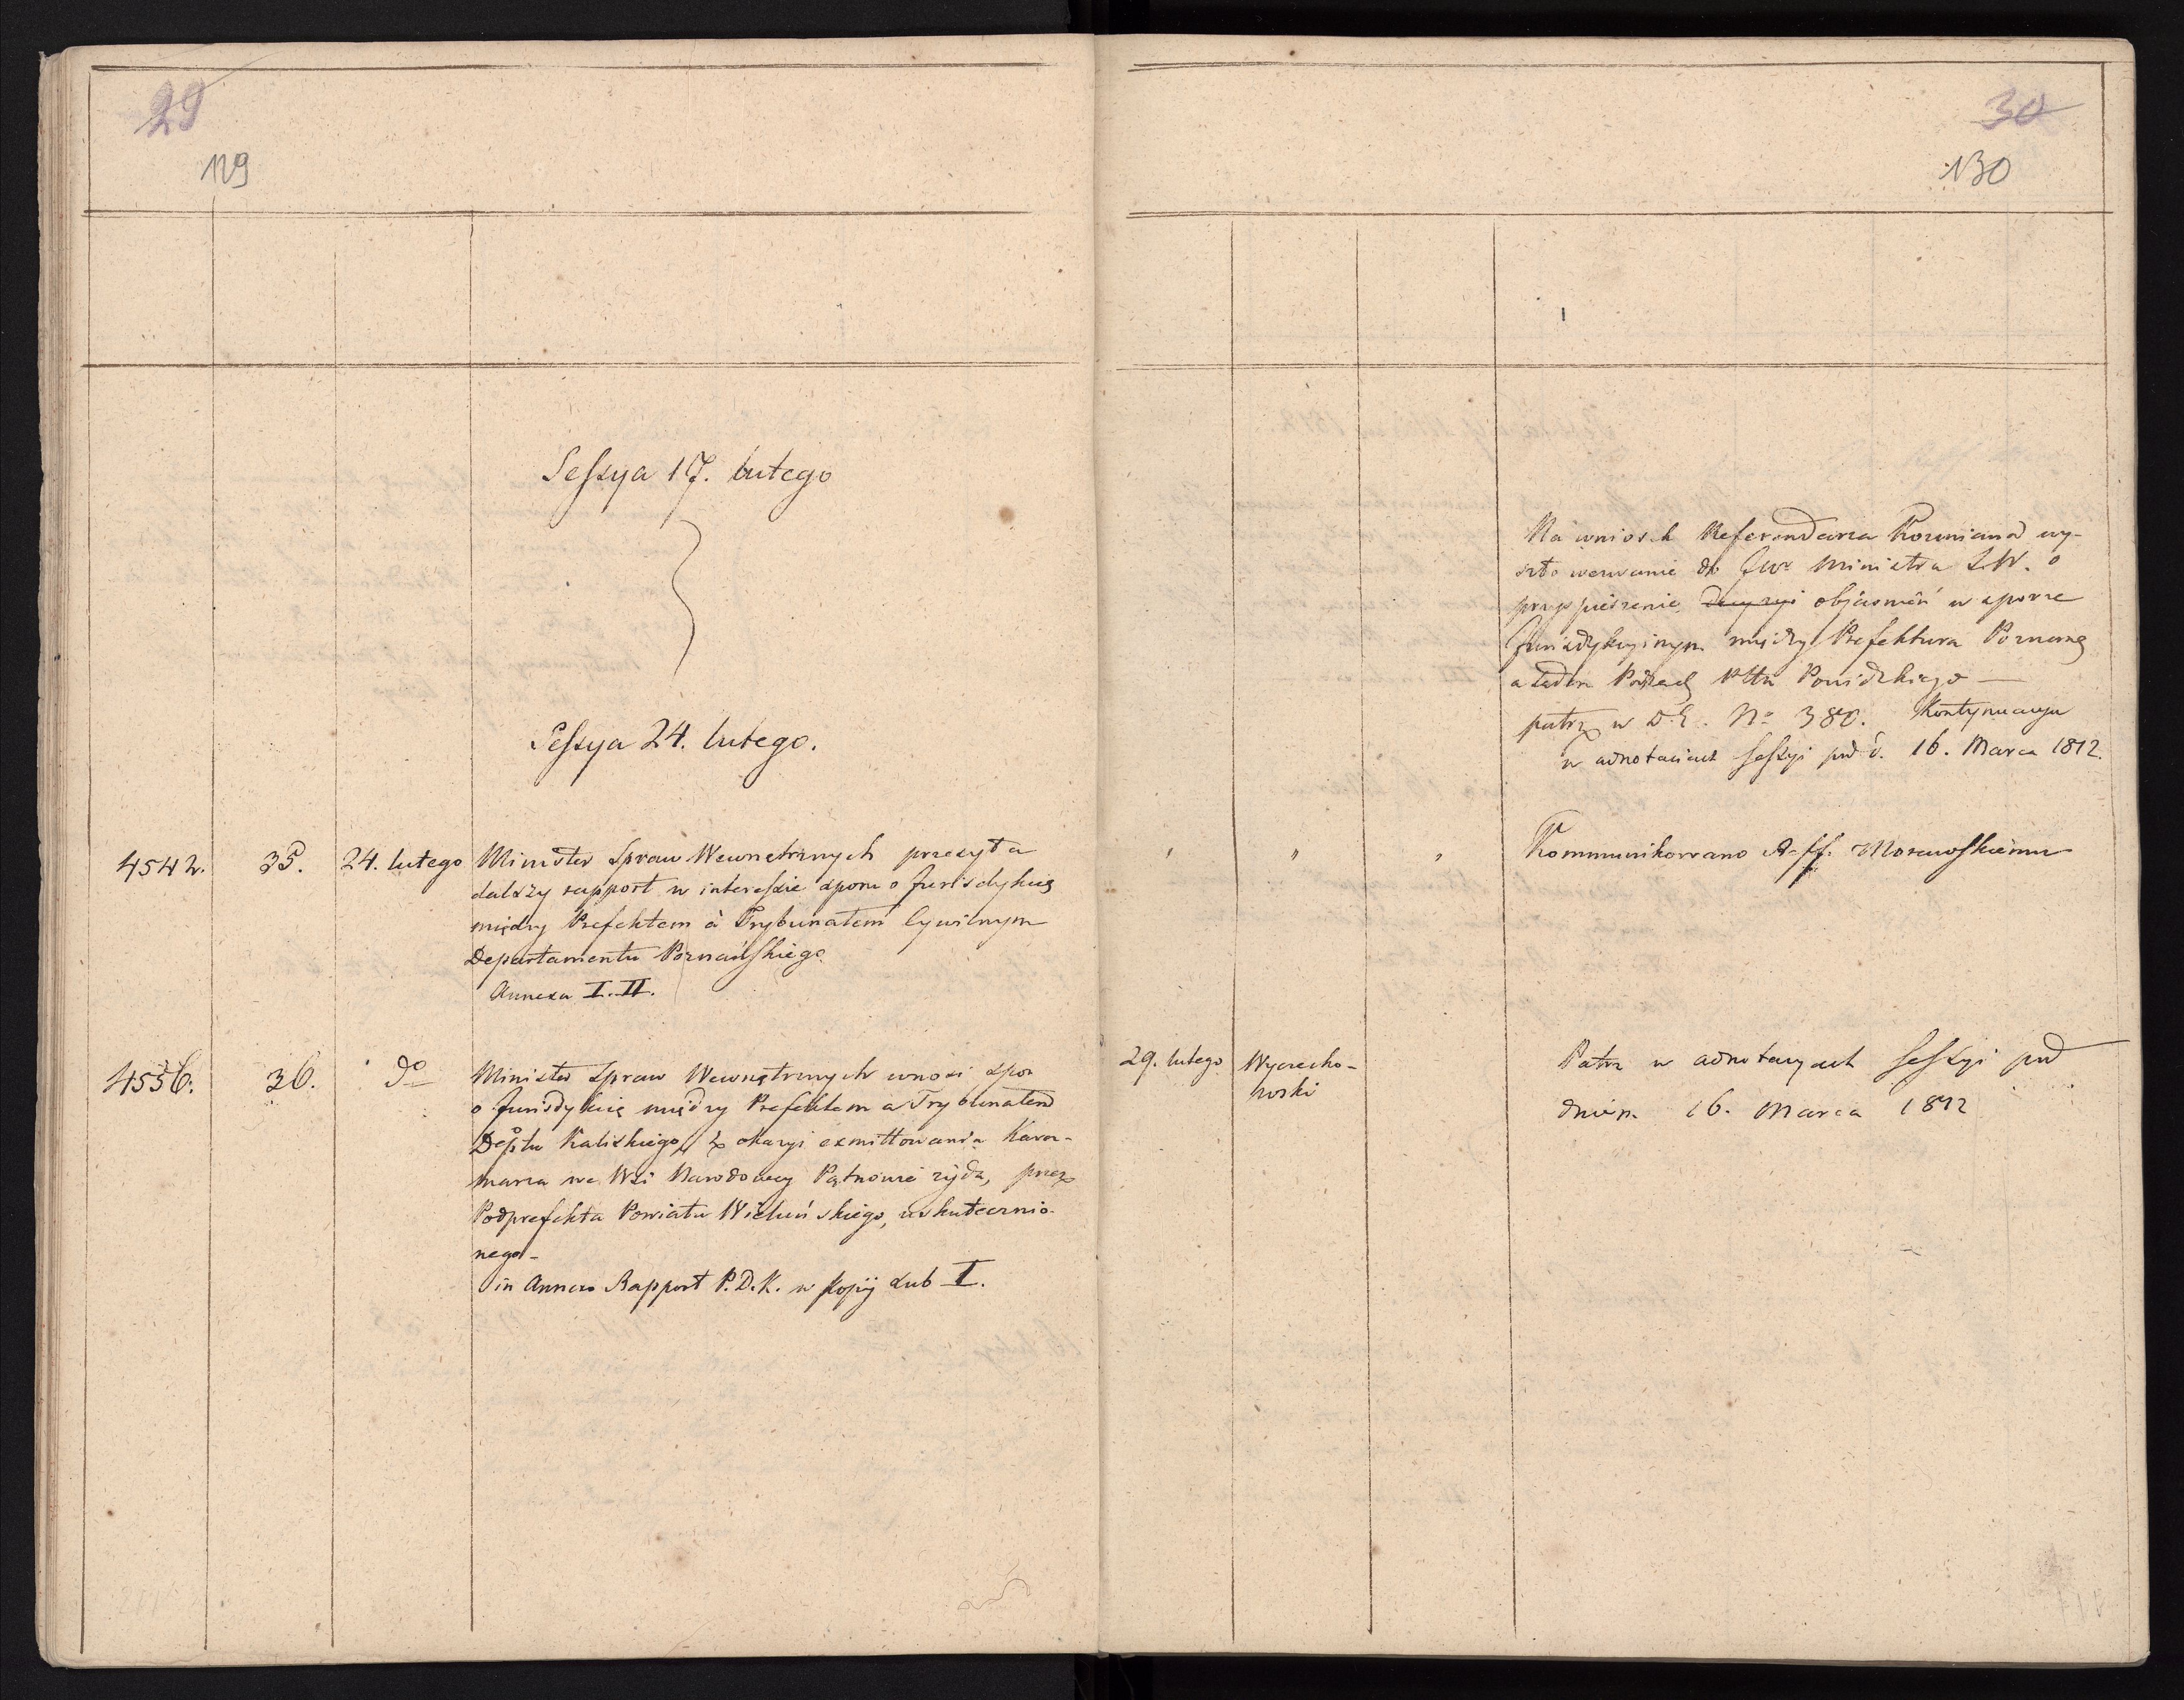 29
129
Sessya 17. lutego
Sessya 24. lutego.
4542. 35. 24. lutego Minister Spraw Wewnętrznych przesyła
dalszy rapport w interessie sporu o Jurisdykcią
między Prefektem a Trybunałem Cywilnym
Departamentu Poznańskiego.
Annexa I. II.
4556. 36. do Minister Spraw Wewnętrznych wnosi spor
o Jurisdykcię między Prefektem a Trybunałem
Deptu Kaliskiego, z okazyi exmittowania Karcz-
marza we Wsi Narodowey Pątnowie żyda, przez
Podprefekta Powiatu Wieluńskiego, uskutecznio-
nego -
in Annexo Rapport P.D.K. w kopij sub I.
30
130
Na wniosek Referendarza Koźmiana wy-
szło wezwanie do JW Ministra S.W. o
przyspieszenie decyzyi objaśnień w sporze
Jurisdykcyinym między Prefekturą Poznańską
a Sądem Pttu Powidzkiego —
patrz w D.E. No 380. Kontynuacya
w adnotaciach Sessyi pod d. 16. Marca 1812.
" " " Kommunikowano A-ss. Morawskiemu
29. lutego Wyczecho-
wski
Patrz w adnotacyach Sessyi pod
dniem 16. Marca 1812